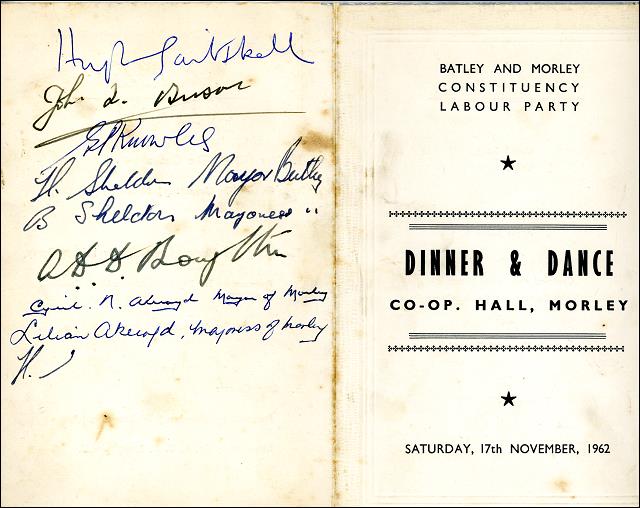 Hugh Gaitskell
John
E Knowles
H. Sheldon Mayor Batley
B Sheldon Mayoress "
A.D.D. Broughton
Cyril. N. Akeroyd Mayor of Morley
Lilian Akeroyd, Mayoress of Morley
H.
BATLEY AND MORLEY
CONSTITUENCY
LABOUR PARTY
DINNER & DANCE
CO-OP. HALL, MORLEY
SATURDAY, 17th NOVEMBER, 1962